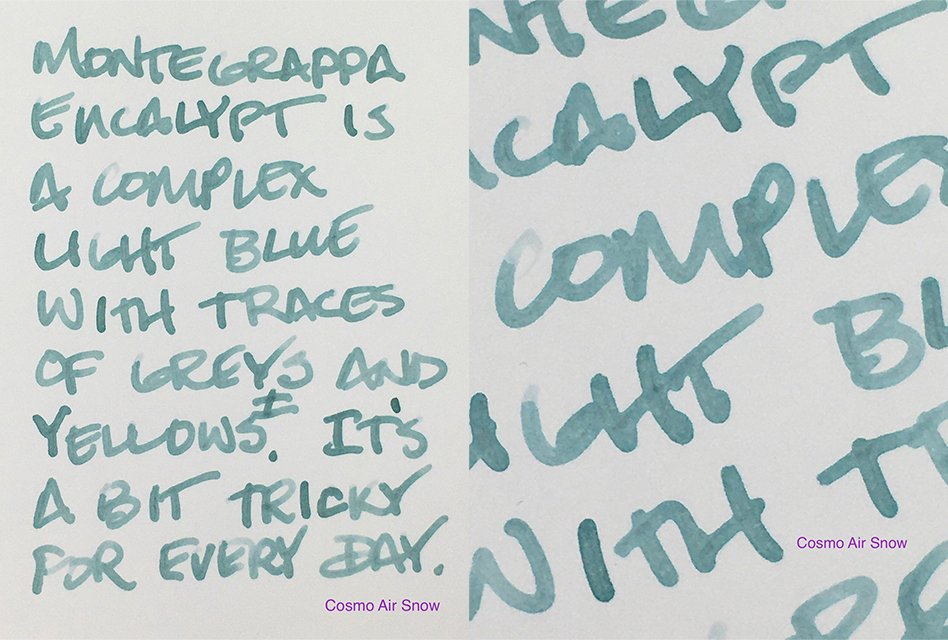 MONTEGRAPPA
ENCALYPT IS
A COMPLEX
LIGHT BLUE
WITH TRACES
OF GREYS AND
YELLOWS ±. IT'S
A BIT TRICKY
FOR EVERY DAY.
Cosmo Air Snow
NTEGR
CALYPT
COMPLE
IGHT BL
WITH TR
Cosmo Air Snow